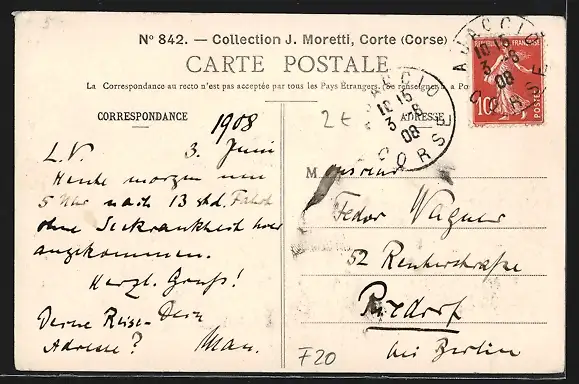 Nº 842. — Collection J. Moretti, Corte (Corse)
CARTE POSTALE
La Correspondance au recto n'est pas acceptée par tous les Pays Etrangers. (Se renseigner à
CORRESPONDANCE
ADRESSE
1908
2 €
L. V. 3. Juni
Heute morgen um
5 Uhr nach 13 std. Fahrt
ohne Seekrankheit hier
angekommen.
Herzl. Gruß!
Deine Reise-
Adresse?
Dein
Max.
Monsieur
Fedor Wagner
52
bei Berlin
F20
AJACCIO
10 15
3 - 6
08
CORSE
AJACCIO
10 15
3 - 6
08
CORSE
RÉPUBLIQUE FRANÇAISE
10
POSTES